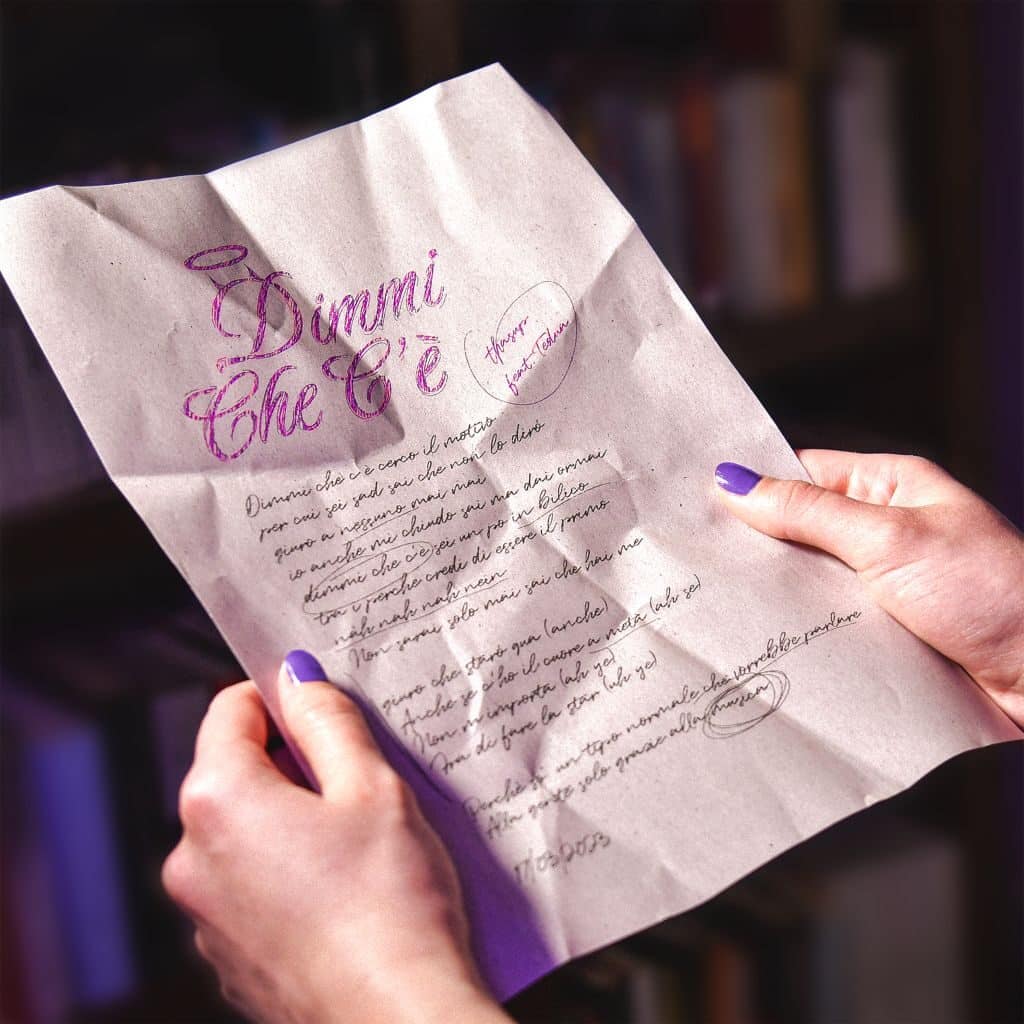 Dimmi
Che C'è
thasup
feat. Tedua
Dimmi che c'è cerco il motivo
per cui sei sad sai che non lo dirò
giuro a nessuno mai mai
io anche mi chiudo sai ma dai ormai
dimmi che c'è sei un po in bilico
tra i perché credi di essere il primo
nah nah nah nein
Non sarai solo mai sai che hai me
giuro che starò qua (anche)
Anche se c'ho il cuore a metà (ah se)
Non mi importa (ah ye)
Ora di fare la star (uh ye)
Perché sì un tipo normale che vorrebbe parlare
Alla gente solo grazie alla musica
17/03/2023